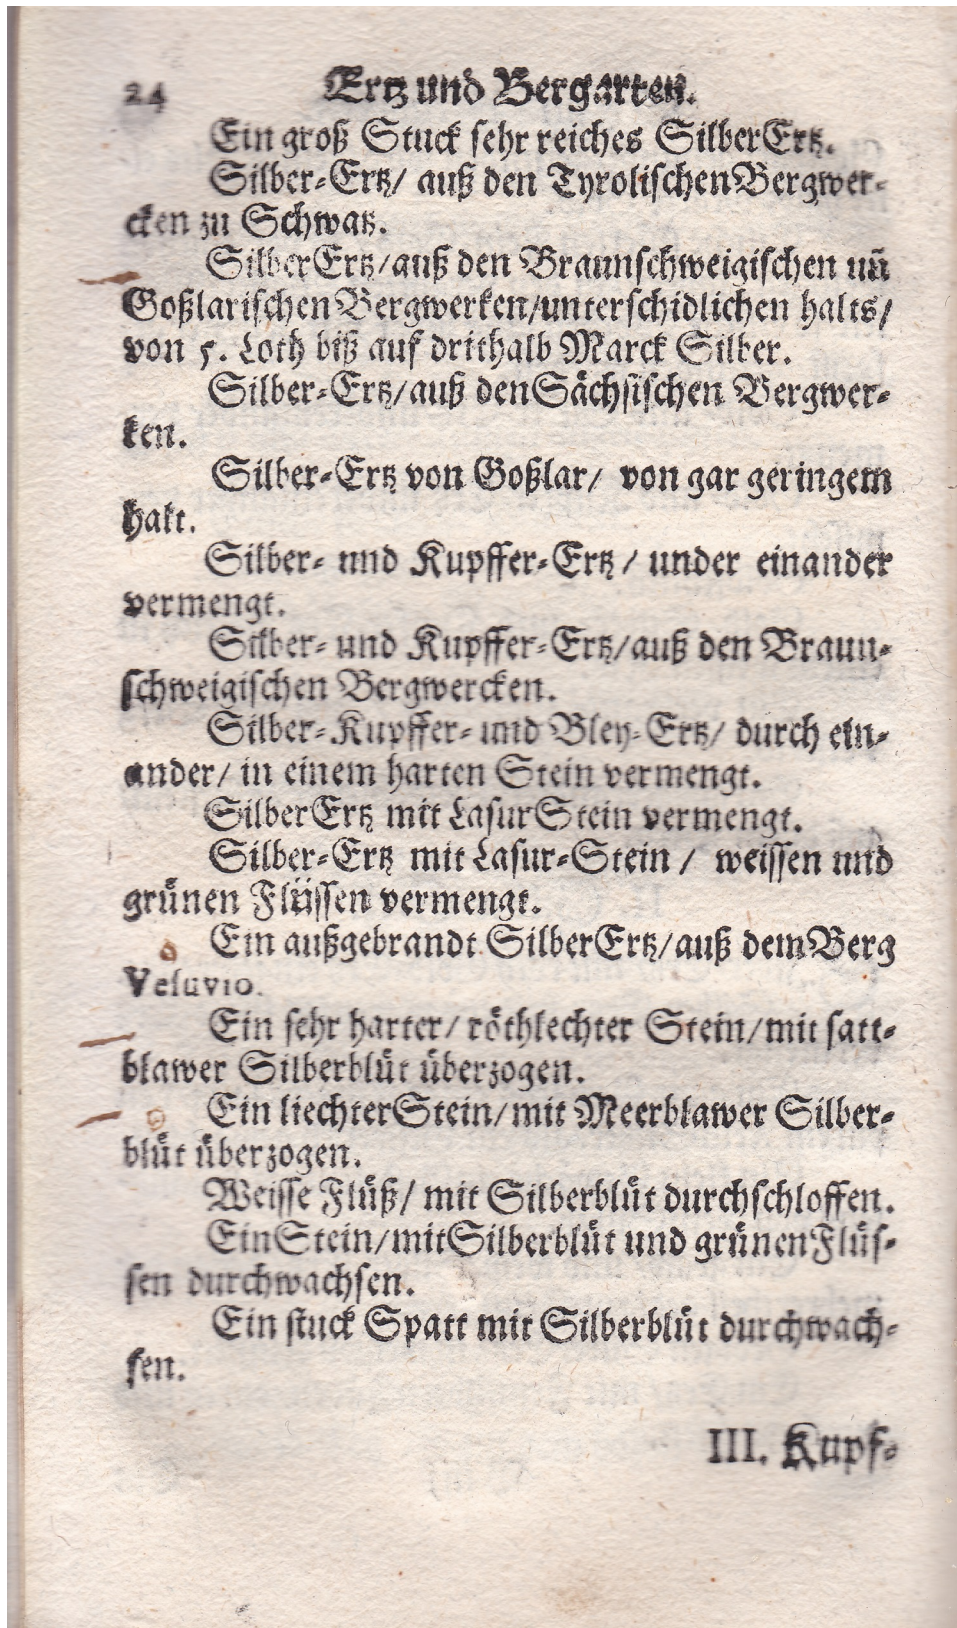 24 Ertz und Bergarten.
Ein groß Stuck sehr reiches SilberErtz.
Silber-Ertz/ auß den Tyrolischen Bergwer-
cken zu Schwatz.
SilberErtz/auß den Braunschweigischen uñ
Goßlarischen Bergwerken/unterschidlichen halts/
von 5. Loth biß auf drithalb Marck Silber.
Silber-Ertz/auß den Sächsischen Bergwer-
ken.
Silber-Ertz von Goßlar/ von gar geringem
halt.
Silber- und Kupffer-Ertz/ under einander
vermengt.
Silber- und Kupffer-Ertz/auß den Braun-
schweigischen Bergwercken.
Silber-Kupffer- und Bley-Ertz/ durch ein-
ander/ in einem harten Stein vermengt.
SilberErtz mit LasurStein vermengt.
Silber-Ertz mit Lasur-Stein/ weissen und
grünen Flüssen vermengt.
Ein außgebrandt SilberErtz/auß dem Berg
Vesuvio.
Ein sehr harter/ röthlechter Stein/mit satt-
blawer Silberblüt überzogen.
Ein liechter Stein/mit Meerblawer Silber-
blüt überzogen.
Weisse Flüß/ mit Silberblüt durchschloffen.
Ein Stein/mit Silberblüt und grünen Flüs-
sen durchwachsen.
Ein stuck Spatt mit Silberblüt durchwach-
sen.
III. Kupf-